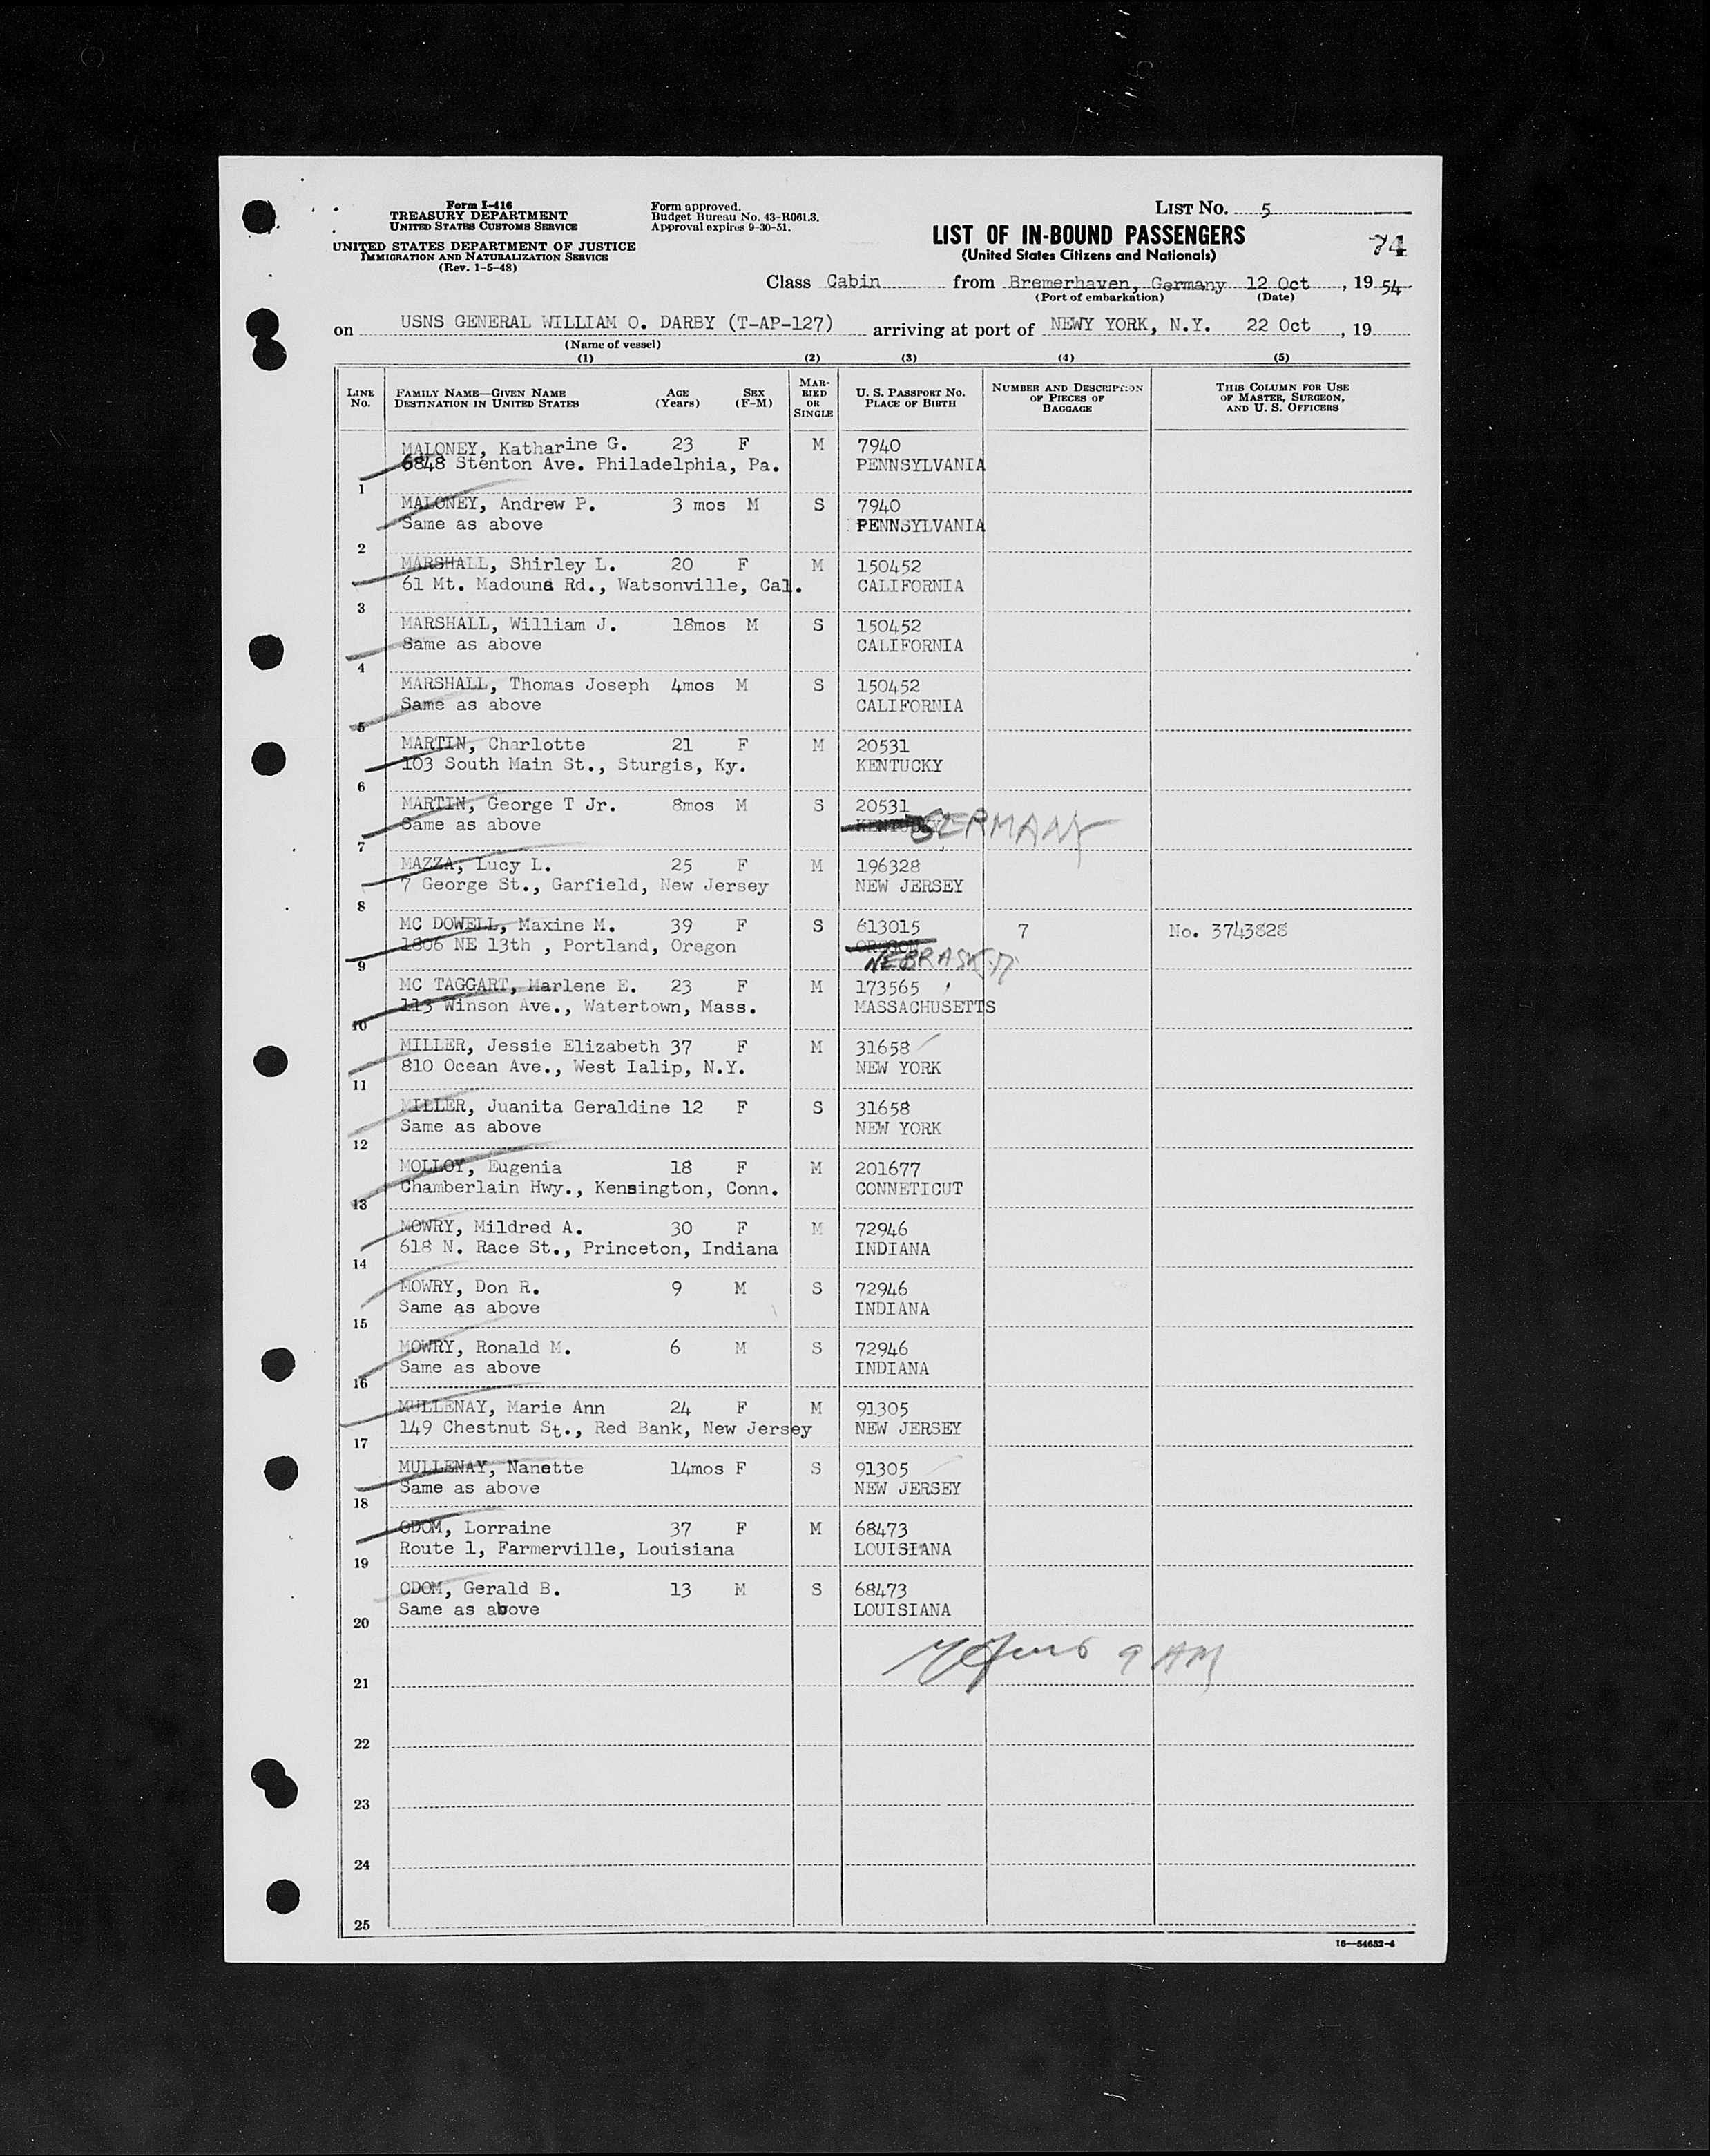 Form I-416
TREASURY DEPARTMENT
UNITED STATES CUSTOMS SERVICE
UNITED STATES DEPARTMENT OF JUSTICE
IMMIGRATION AND NATURALIZATION SERVICE
(Rev. 1-5-48)
Form approved.
Budget Bureau No. 43-R061.3.
Approval expires 9-30-51.
LIST No. 5
LIST OF IN-BOUND PASSENGERS
(United States Citizens and Nationals)
74
Class Cabin from Bremerhaven, Germany 12 Oct, 19 54
(Port of embarkation) (Date)
on USNS GENERAL WILLIAM O. DARBY (T-AP-127) arriving at port of NEWY YORK, N.Y. 22 Oct, 19
(Name of vessel)
(1) (2) (3) (4) (5)
LINE No. FAMILY NAME—GIVEN NAME DESTINATION IN UNITED STATES AGE (Years) SEX (F-M) MARRIED OR SINGLE U. S. PASSPORT No. PLACE OF BIRTH NUMBER AND DESCRIPTION OF PIECES OF BAGGAGE THIS COLUMN FOR USE OF MASTER, SURGEON, AND U. S. OFFICERS
MALONEY, Katharine G. 23 F M 7940
6848 Stenton Ave. Philadelphia, Pa. PENNSYLVANIA
1
MALONEY, Andrew P. 3 mos M S 7940
Same as above PENNSYLVANIA
2
MARSHALL, Shirley L. 20 F M 150452
61 Mt. Madouna Rd., Watsonville, Cal. CALIFORNIA
3
MARSHALL, William J. 18mos M S 150452
Same as above CALIFORNIA
4
MARSHALL, Thomas Joseph 4mos M S 150452
Same as above CALIFORNIA
5
MARTIN, Charlotte 21 F M 20531
103 South Main St., Sturgis, Ky. KENTUCKY
6
MARTIN, George T Jr. 8mos M S 20531
Same as above KENTUCKY GERMANY
7
MAZZA, Lucy L. 25 F M 196328
7 George St., Garfield, New Jersey NEW JERSEY
8
MC DOWELL, Maxine M. 39 F S 613015 7 No. 3743828
1806 NE 13th , Portland, Oregon OREGON
9 NEBRASKA
MC TAGGART, Marlene E. 23 F M 173565
113 Winson Ave., Watertown, Mass. MASSACHUSETTS
10
MILLER, Jessie Elizabeth 37 F M 31658
810 Ocean Ave., West Ialip, N.Y. NEW YORK
11
MILLER, Juanita Geraldine 12 F S 31658
Same as above NEW YORK
12
MOLLOY, Eugenia 18 F M 201677
Chamberlain Hwy., Kensington, Conn. CONNETICUT
13
MOWRY, Mildred A. 30 F M 72946
618 N. Race St., Princeton, Indiana INDIANA
14
MOWRY, Don R. 9 M S 72946
Same as above INDIANA
15
MOWRY, Ronald M. 6 M S 72946
Same as above INDIANA
16
MULLENAY, Marie Ann 24 F M 91305
149 Chestnut St., Red Bank, New Jersey NEW JERSEY
17
MULLENAY, Nanette 14mos F S 91305
Same as above NEW JERSEY
18
ODOM, Lorraine 37 F M 68473
Route 1, Farmerville, Louisiana LOUISIANA
19
ODOM, Gerald B. 13 M S 68473
Same as above LOUISIANA
20
9 AM
21
22
23
24
25
16—54652-4